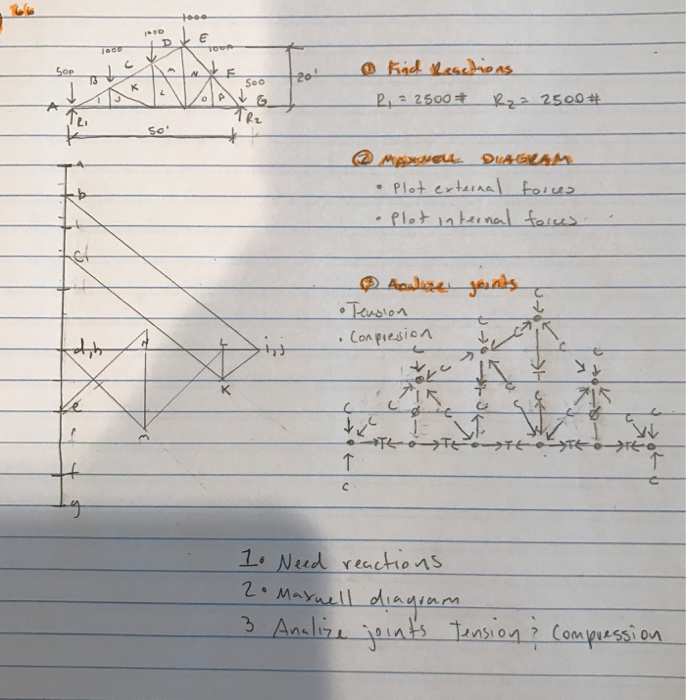 1000
1000 D E
1000 C 1000
500 B K M N F 500 20'
A I J L O P G
R1 R2
50'
① Find Reactions
R1 = 2500# R2 = 2500#
② MAXWELL DIAGRAM
• Plot external forces
• Plot internal forces.
③ Analize joints
• Tension
• Compression
a
b
c
d,h N L i,j
K
e
m
f
g
1. Need reactions
2. Maxwell diagram
3 Analize joints Tension & Compression